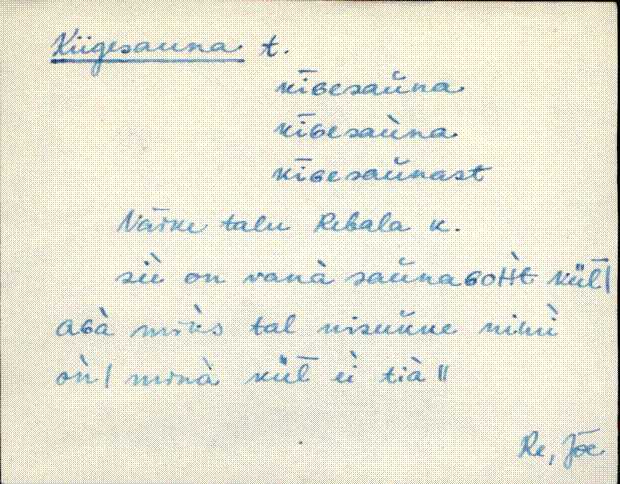 Kiigesauna t.
kīɢesaŭna
kīɢesaùna
kīɢesaŭnast
Väike talu Rebala k.
siè on vanà saŭnaɢoHt küĺl |
aɢà miks tal nisuùke nimì
òn | minà küĺl èi tià ||
Re, Jõe